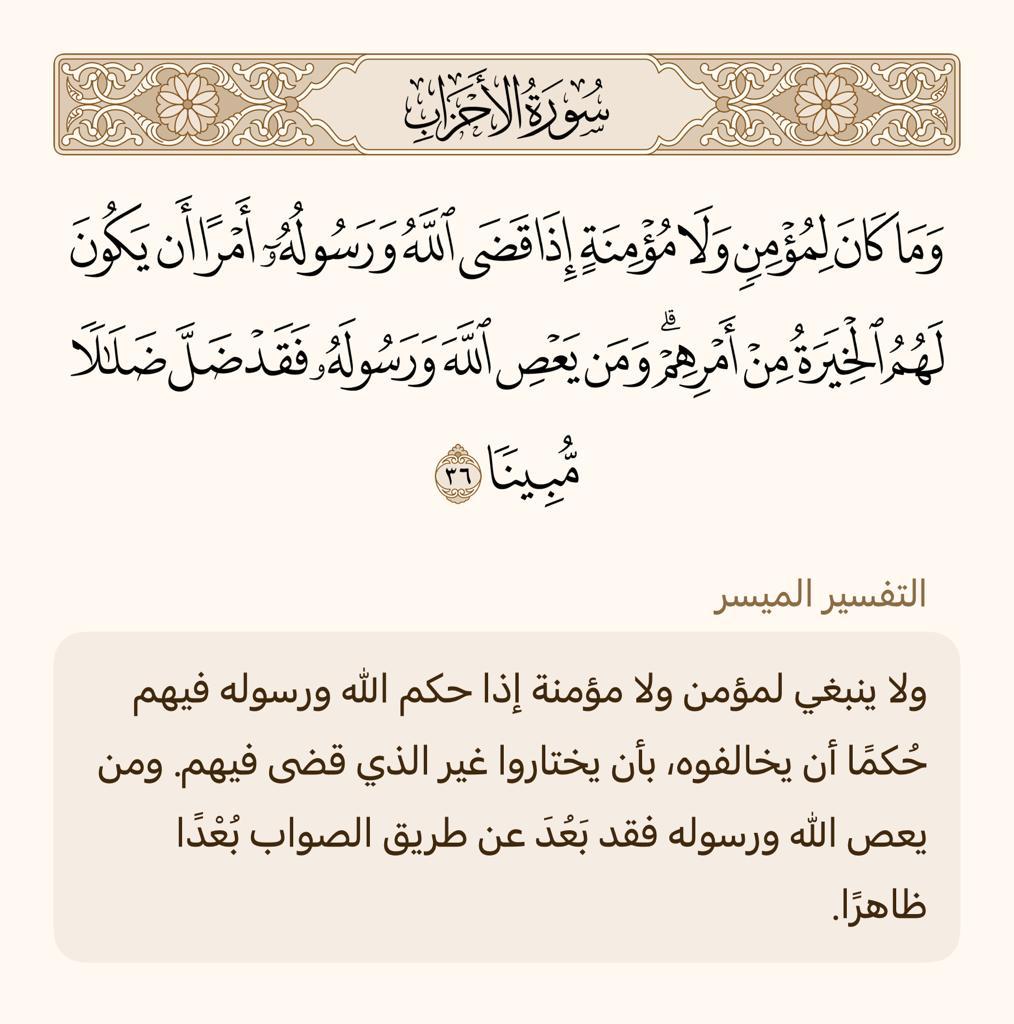 سُورَةُ الأَحۡزَابِ
وَمَا كَانَ لِمُؤۡمِنٖ وَلَا مُؤۡمِنَةٍ إِذَا قَضَى ٱللَّهُ وَرَسُولُهُۥٓ أَمۡرًا أَن يَكُونَ
لَهُمُ ٱلۡخِيَرَةُ مِنۡ أَمۡرِهِمۡۗ وَمَن يَعۡصِ ٱللَّهَ وَرَسُولَهُۥ فَقَدۡ ضَلَّ ضَلَٰلٗا
مُّبِينٗا ٣٦
التفسير الميسر
ولا ينبغي لمؤمن ولا مؤمنة إذا حكم الله ورسوله فيهم
حُكمًا أن يخالفوه، بأن يختاروا غير الذي قضى فيهم. ومن
يعص الله ورسوله فقد بَعُدَ عن طريق الصواب بُعْدًا
ظاهرًا.